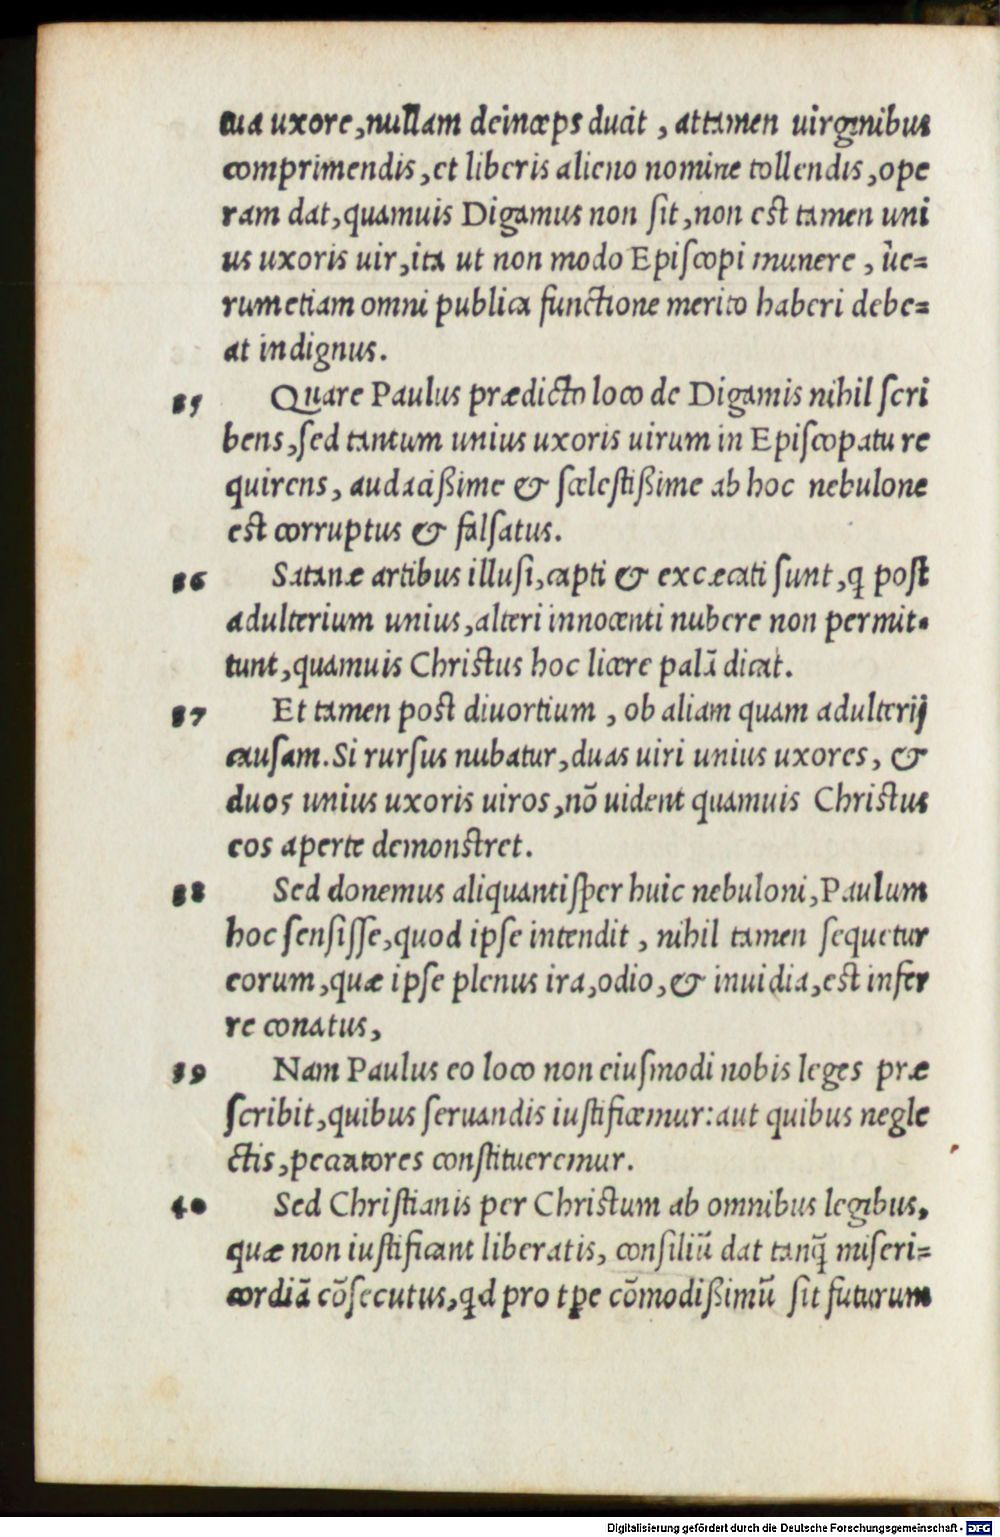 tua uxore, nullam deinceps ducit, attamen uirginibus
comprimendis, et liberis alieno nomine tollendis, ope
ram dat, quamuis Digamus non ſit, non est tamen uni
us uxoris uir, ita ut non modo Epiſcopi munere, ùe=
rumetiam omni publica functione merito haberi debe=
at indignus.
35 Quare Paulus prædicto loco de Digamis nihil ſcri
bens, ſed tantum unius uxoris uirum in Epiſcopatu re
quirens, audacißime & ſceleſtißime ab hoc nebulone
est corruptus & falſatus.
36 Satanæ artibus illuſi, capti & excæcati ſunt, ꝗ poſt
adulterium unius, alteri innocenti nubere non permit-
tunt, quamuis Chriſtus hoc licere palā dicat.
37 Et tamen post diuortium, ob aliam quam adulterij
cauſam. Si rurſus nubatur, duas uiri unius uxores, &
duos unius uxoris uiros, nō uident quamuis Chriſtus
eos aperte demonſtret.
38 Sed donemus aliquantiſper huic nebuloni, Paulum
hoc ſenſiſſe, quod ipſe intendit, nihil tamen ſequetur
eorum, quæ ipſe plenus ira, odio, & inuidia, est infer
re conatus,
39 Nam Paulus eo loco non eiuſmodi nobis leges præ
ſcribit, quibus ſeruandis iuſtificemur: aut quibus negle
ctis, peccatores conſtitueremur.
40 Sed Chriſtianis per Chriſtum ab omnibus legibus,
quæ non iuſtificant liberatis, conſiliū dat tanq̄ miſeri=
cordiā cōſecutus, qd pro tꝑe cōmodißimū ſit futurum
Digitalisierung gefördert durch die Deutsche Forschungsgemeinschaft - DFG